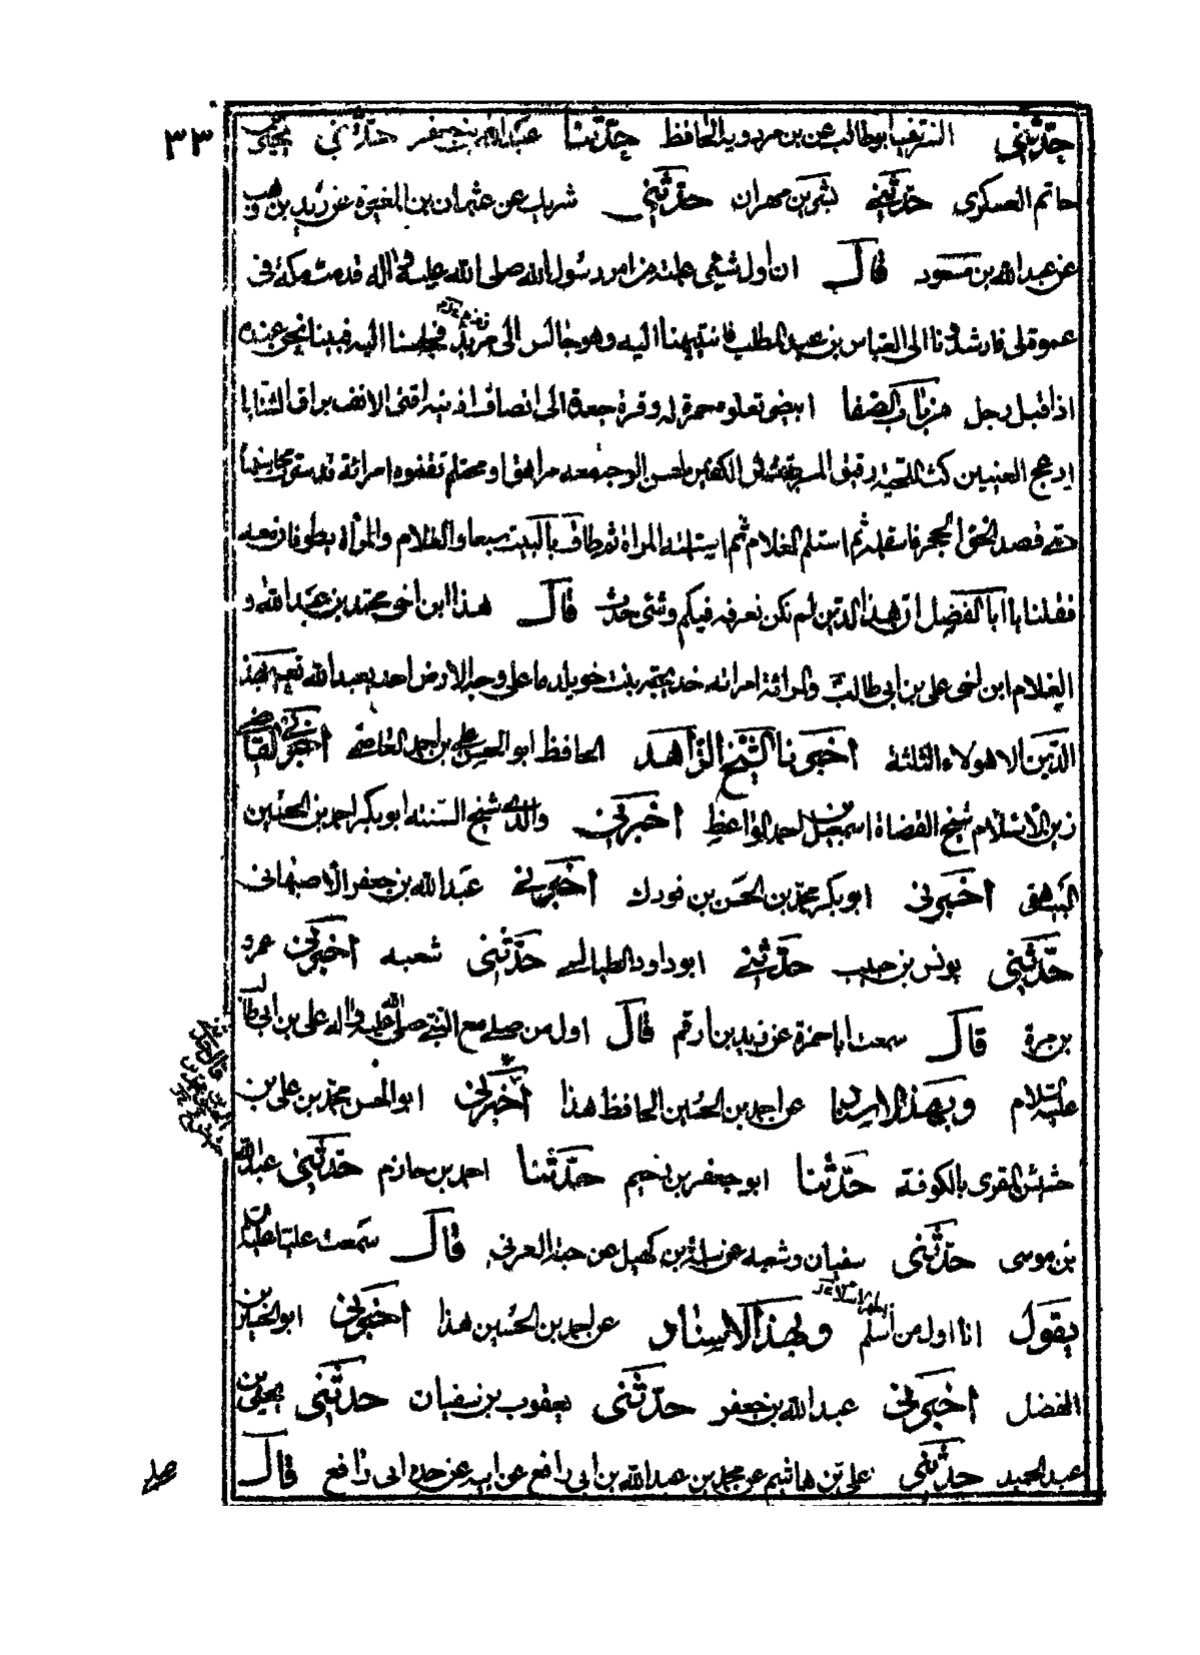 ٣٣
حدثني الشريف ابوطالب عن بن مردويه الحافظ حدثنا عبدالله بن جعفر حدثني يحيى بن
حاتم العسكري حدثني بشر بن مهران حدثني شريك عن عثمان بن المغيرة عن زيد بن وهب
عن عبدالله بن مسعود قال ان اول شيئ علمته من امر رسول الله صلى الله عليه وآله قدمت مكة في
عمومة لي فارشدونا الى العباس بن عبد المطلب فانتهينا اليه وهو جالس الى زمزم فجلسنا اليه فبينا نحن عنده
اذ اقبل رجل من باب الصفا ابيض تعلوه حمرة له وفرة جعدة الى انصاف اذنيه اقنى الانف براق الثنايا
ادعج العينين كث اللحية دقيق المسربة شثن الكفين حسن الوجه معه مراهق او محتلم تقفوه امرأة قد سترت محاسنها
حتى قصد نحو الحجر فاستلمه ثم استلم الغلام ثم استلمته المراة ثم طاف بالبيت سبعا والغلام والمرأة يطوفان معه
فقلنا يا ابا الفضل ان هذا الدين لم نكن نعرفه فيكم وشئ حدث قال هذا ابن اخي محمد بن عبدالله و
الغلام ابن اخى على بن ابى طالب والمرأة امرأته خديجة بنت خويلد ما على وجه الارض احد يعبد الله تعالى بهذا
الدين الا هولاء الثلثة اخبرنا الشيخ الزاهد الحافظ ابو الحسن علي بن احمد العاصمي اخبرني القاضي
زين الاسلام شيخ القضاة اسمعيل بن احمد الواعظ اخبرني والدي شيخ السنة ابو بكر احمد بن الحسين
البيهقى اخبرني ابو بكر محمد بن الحسن بن فورك اخبرني عبد الله بن جعفر الاصبهاني
حدثني يونس بن حبيب حدثني ابو داود الطيالسي حدثني شعبه اخبرني عمرو
بن مرة قال سمعت ابا حمزة عن زيد بن ارقم قال اول من صلى مع النبي صلى الله عليه واله على بن ابى طالب
عليه السلام وبهذا الاسناد عن احمد بن الحسين الحافظ هذا اخبرني ابو الحسن محمد بن على بن
خشيش المقرى بالكوفة حدثنا ابو جعفر بن دحيم حدثنا احمد بن حازم حدثني عبدالله
بن موسى حدثني سفيان وشعبه عن سلمة بن كهيل عن حبة العرني قال سمعت عليا عليه السلام
يقول انا اول من أسلم وبهذا الاسناد عن احمد بن الحسين هذا اخبرني ابو الحسين بن
الفضل اخبرني عبد الله بن جعفر حدثني يعقوب بن سفيان حدثني يحيى بن
عبد الحميد حدثني على بن هاشم عن محمد بن عبد الله بن ابى رافع عن ابيه عن جده ابى رافع قال
صلى